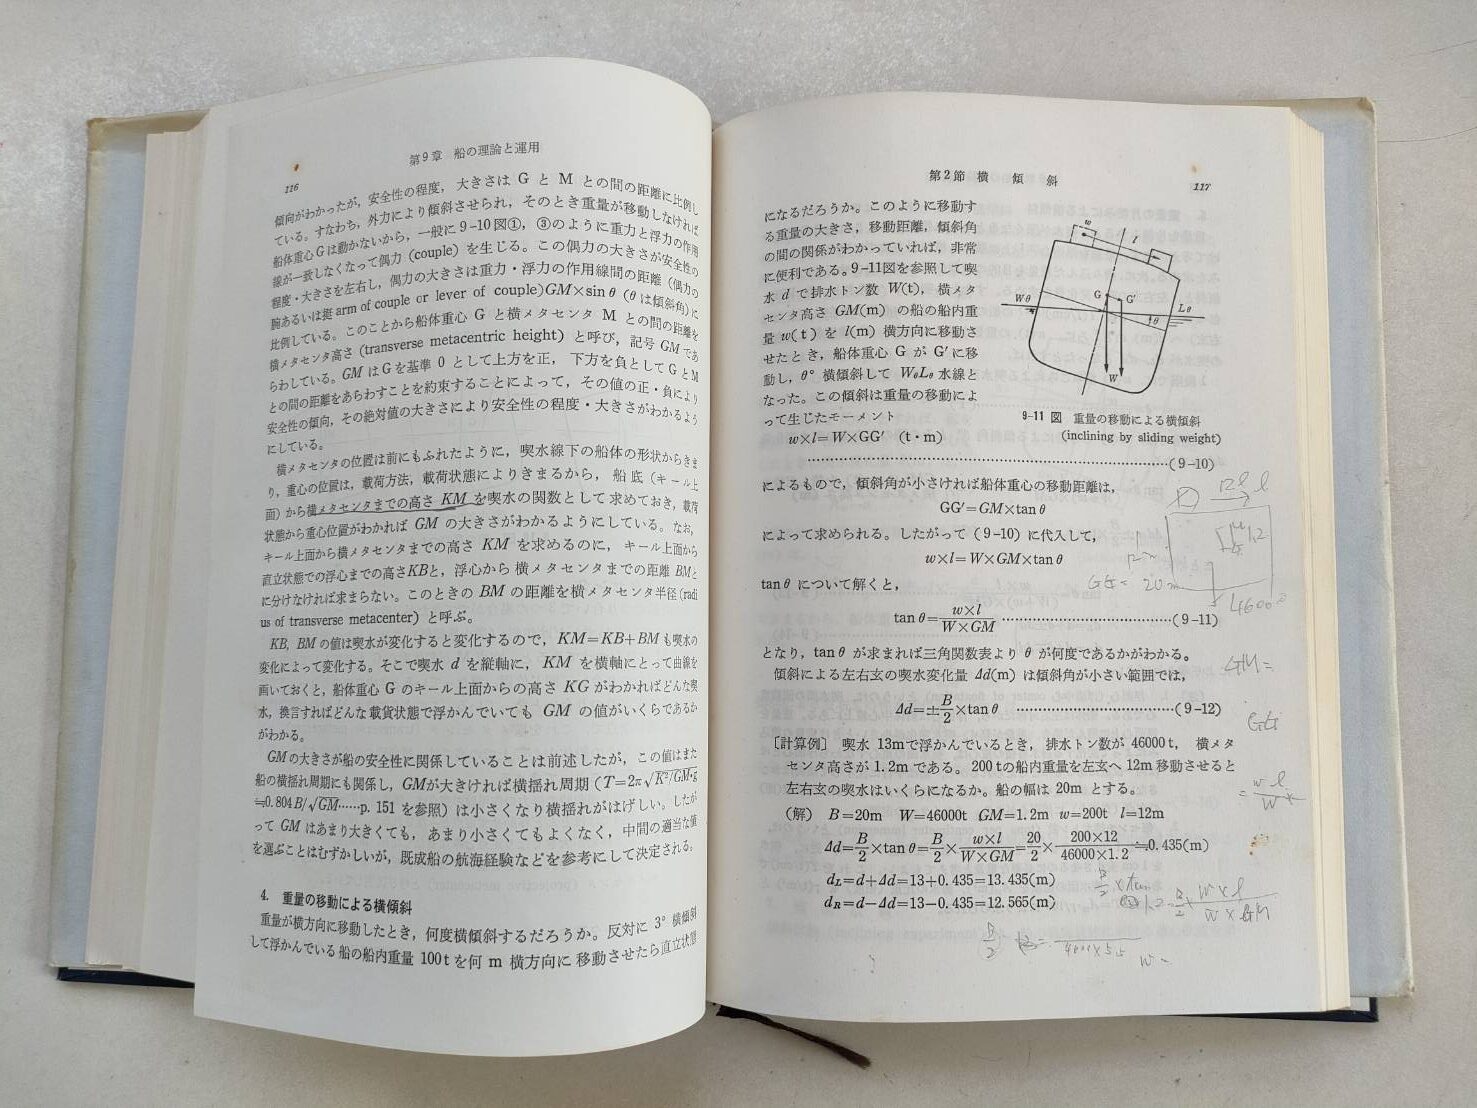 第9章 船の理論と運用
116
傾向がわかったが，安全性の程度，大きさは G と M との間の距離に比例し
ている。すなわち，外力により傾斜させられ，そのとき重量が移動しなければ
船体重心Gは動かないから，一般に 9-10図①，③のように重力と浮力の作用
線が一致しなくなって偶力 (couple) を生じる。この偶力の大きさが安全性の
程度・大きさを左右し，偶力の大きさは重力・浮力の作用線間の距離（偶力の
腕あるいは挺 arm of couple or lever of couple)GM×sin θ (θ は傾斜角) に
比例している。このことから船体重心 G と横メタセンタ M との間の距離を
横メタセンタ高さ (transverse metacentric height) と呼び，記号 GM であ
らわしている。GM はGを基準 0 として上方を正，下方を負として G と M
との間の距離をあらわすことを約束することによって，その値の正・負により
安全性の傾向，その絶対値の大きさにより安全性の程度・大きさがわかるよう
にしている。
横メタセンタの位置は前にもふれたように，喫水線下の船体の形状からきま
り，重心の位置は，載荷方法，載荷状態によりきまるから，船底（キール上
面）から横メタセンタまでの高さ KM を喫水の関数として求めておき，載荷
状態から重心位置がわかれば GM の大きさがわかるようにしている。なお，
キール上面から横メタセンタまでの高さ KM を求めるのに，キール上面から
直立状態での浮心までの高さKBと，浮心から横メタセンタまでの距離 BMと
に分けなければ求まらない。このときの BM の距離を横メタセンタ半径(radi
us of transverse metacenter) と呼ぶ。
KB, BM の値は喫水が変化すると変化するので，KM=KB+BM も喫水の
変化によって変化する。そこで喫水 d を縦軸に，KM を横軸にとって曲線を
画いておくと，船体重心 G のキール上面からの高さ KG がわかればどんな喫
水，換言すればどんな載貨状態で浮かんでいても GM の値がいくらであるか
がわかる。
GMの大きさが船の安全性に関係していることは前述したが，この値はまた
船の横揺れ周期にも関係し，GMが大きければ横揺れ周期 (T=2π√K²/GM・g
≒0.804B/√GM……p. 151 を参照) は小さくなり横揺れがはげしい。したが
って GM はあまり大きくても，あまり小さくてもよくなく，中間の適当な値
を選ぶことはむずかしいが，既成船の航海経験などを参考にして決定される。
4. 重量の移動による横傾斜
重量が横方向に移動したとき，何度横傾斜するだろうか。反対に 3° 横傾斜
して浮かんでいる船の船内重量 100t を何 m 横方向に移動させたら直立状態
第2節 横 傾 斜
117
になるだろうか。このように移動す
る重量の大きさ，移動距離，傾斜角
の間の関係がわかっていれば，非常
に便利である。9-11図を参照して喫
水 d で排水トン数 W(t)，横メタ
センタ高さ GM(m) の船の船内重
量 w(t) を l(m) 横方向に移動さ
せたとき，船体重心 G が G′に移
動し，θ° 横傾斜して WθLθ 水線と
なった。この傾斜は重量の移動によ
って生じたモーメント
w×l=W×GG′ (t・m)
……(9-10)
w
l
G
G′
Wθ
Lθ
θ
W
9-11 図 重量の移動による横傾斜
(inclining by sliding weight)
によるもので，傾斜角が小さければ船体重心の移動距離は，
GG′=GM×tan θ
によって求められる。したがって (9-10) に代入して，
w×l=W×GM×tan θ
tan θ について解くと，
tan θ=w×l/W×GM ……(9-11)
となり，tan θ が求まれば三角関数表より θ が何度であるかがわかる。
傾斜による左右玄の喫水変化量 Δd(m) は傾斜角が小さい範囲では，
Δd=±B/2×tan θ ……(9-12)
〔計算例〕 喫水 13mで浮かんでいるとき，排水トン数が 46000t，横メタ
センタ高さが 1.2m である。200tの船内重量を左玄へ 12m 移動させると
左右玄の喫水はいくらになるか。船の幅は 20m とする。
(解) B=20m W=46000t GM=1.2m w=200t l=12m
Δd=B/2×tan θ=B/2×w×l/W×GM=20/2×200×12/46000×1.2≒0.435(m)
dL=d+Δd=13+0.435=13.435(m)
dR=d−Δd=13−0.435=12.565(m)
20m
46000
GM=
B/2×tan
B/2×w×l/W×GM